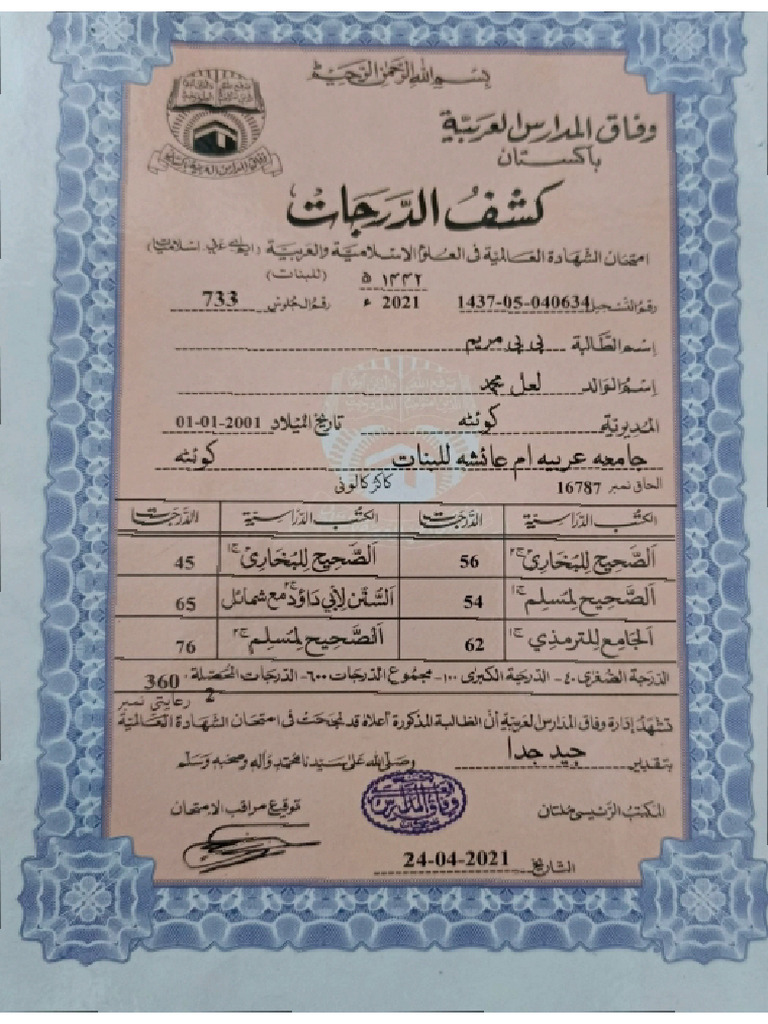 بسم الله الرحمن الرحيم
وفاق المدارس العربية
باكستان
كشف الدرجات
امتحان الشهادة العالمية في العلوم الاسلامية والعربية (ايم اے عربی۔ اسلاميات)
(للبنات)
۱۴۴۲ ھ
رقم التسجيل 1437-05-040634 2021 ء رقم الجلوس 733
اسم الطالبة بی بی مریم
اسم الوالد لعل محمد
المديرية كوئٹه تاريخ الميلاد 01-01-2001
جامعه عربيه ام عائشه للبنات كوئٹه
الحاق نمبر 16787 كاكڑ كالونی
الكتب الدراسية الدرجات الكتب الدراسية الدرجات
الصحيح للبخاري ج۲ 56 الصحيح للبخاري ج۱ 45
الصحيح لمسلم ج۱ 54 السنن لأبي داؤد ج۲ مع شمائل 65
الجامع للترمذي ج۱ 62 الصحيح لمسلم ج۲ 76
الدرجة الصغرى ۴۰- الدرجة الكبرى ۱۰۰- مجموع الدرجات ۶۰۰- الدرجات المحصلة 360
رعایتی نمبر 2
تشهد إدارة وفاق المدارس العربية أن الطالبة المذكورة أعلاه قد نجحت في امتحان الشهادة العالمية
بتقدير جيد جدا وصلى الله على سيدنا محمد وآله وصحبه وسلم
المكتب الرئيسي ملتان توقيع مراقب الامتحان
وفاق المدارس
التاريخ 24-04-2021